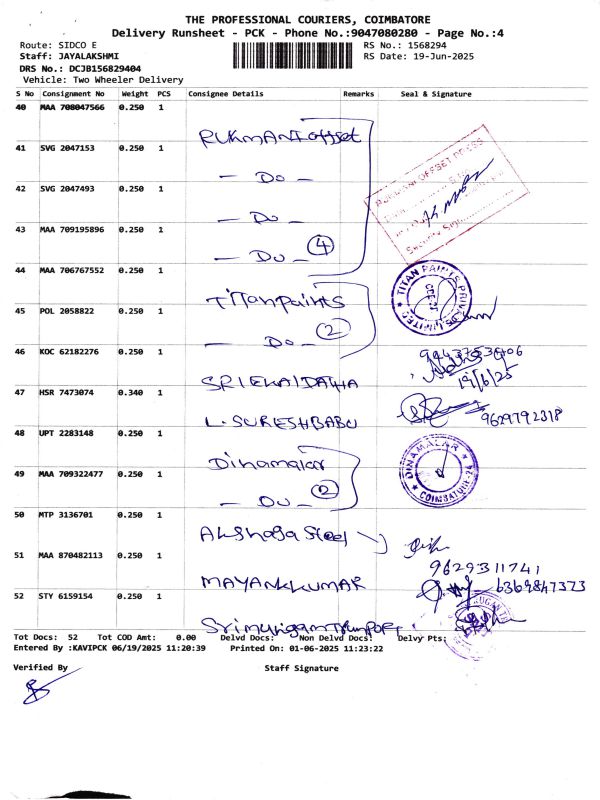 THE PROFESSIONAL COURIERS, COIMBATORE
Delivery Runsheet - PCK - Phone No.:9047080280 - Page No.:4
Route: SIDCO E RS No.: 1568294
Staff: JAYALAKSHMI RS Date: 19-Jun-2025
DRS No.: DCJB156829404
Vehicle: Two Wheeler Delivery
S No Consignment No Weight PCS Consignee Details Remarks Seal & Signature
40 MAA 708047566 0.250 1
RUKMANI offset
41 SVG 2047153 0.250 1
— Do —
42 SVG 2047493 0.250 1
— Do —
43 MAA 709195896 0.250 1
— Do — 4
44 MAA 706767552 0.250 1
Titan paints
TITAN PAINTS PRIVATE LIMITED
45 POL 2058822 0.250 1
— Do — 2
46 KOC 62182276 0.250 1
19/6/25
47 HSR 7473074 0.340 1
L. SURESHBABU 9629792318
48 UPT 2283148 0.250 1
Dinamalar
DINAMALAR COIMBATORE-24
49 MAA 709322477 0.250 1
— Do — 2
50 MTP 3136701 0.250 1
Steel
51 MAA 870482113 0.250 1
9629311741
MAYANKKUMAR 6369847373
52 STY 6159154 0.250 1
Tot Docs: 52 Tot COD Amt: 0.00 Delvd Docs: Non Delvd Docs: Delvy Pts:
Entered By :KAVIPCK 06/19/2025 11:20:39 Printed On: 01-06-2025 11:23:22
Verified By Staff Signature